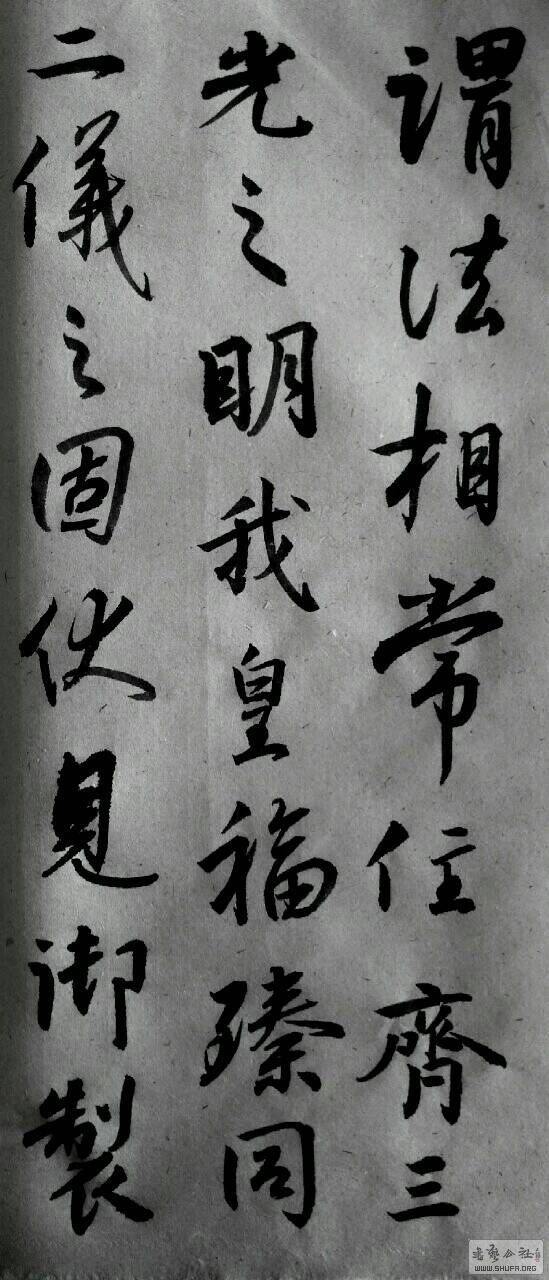 謂法相常住齊三
光之明我皇福臻同
二儀之固伏見御製
書艺公社
WWW.SHUFA.ORG